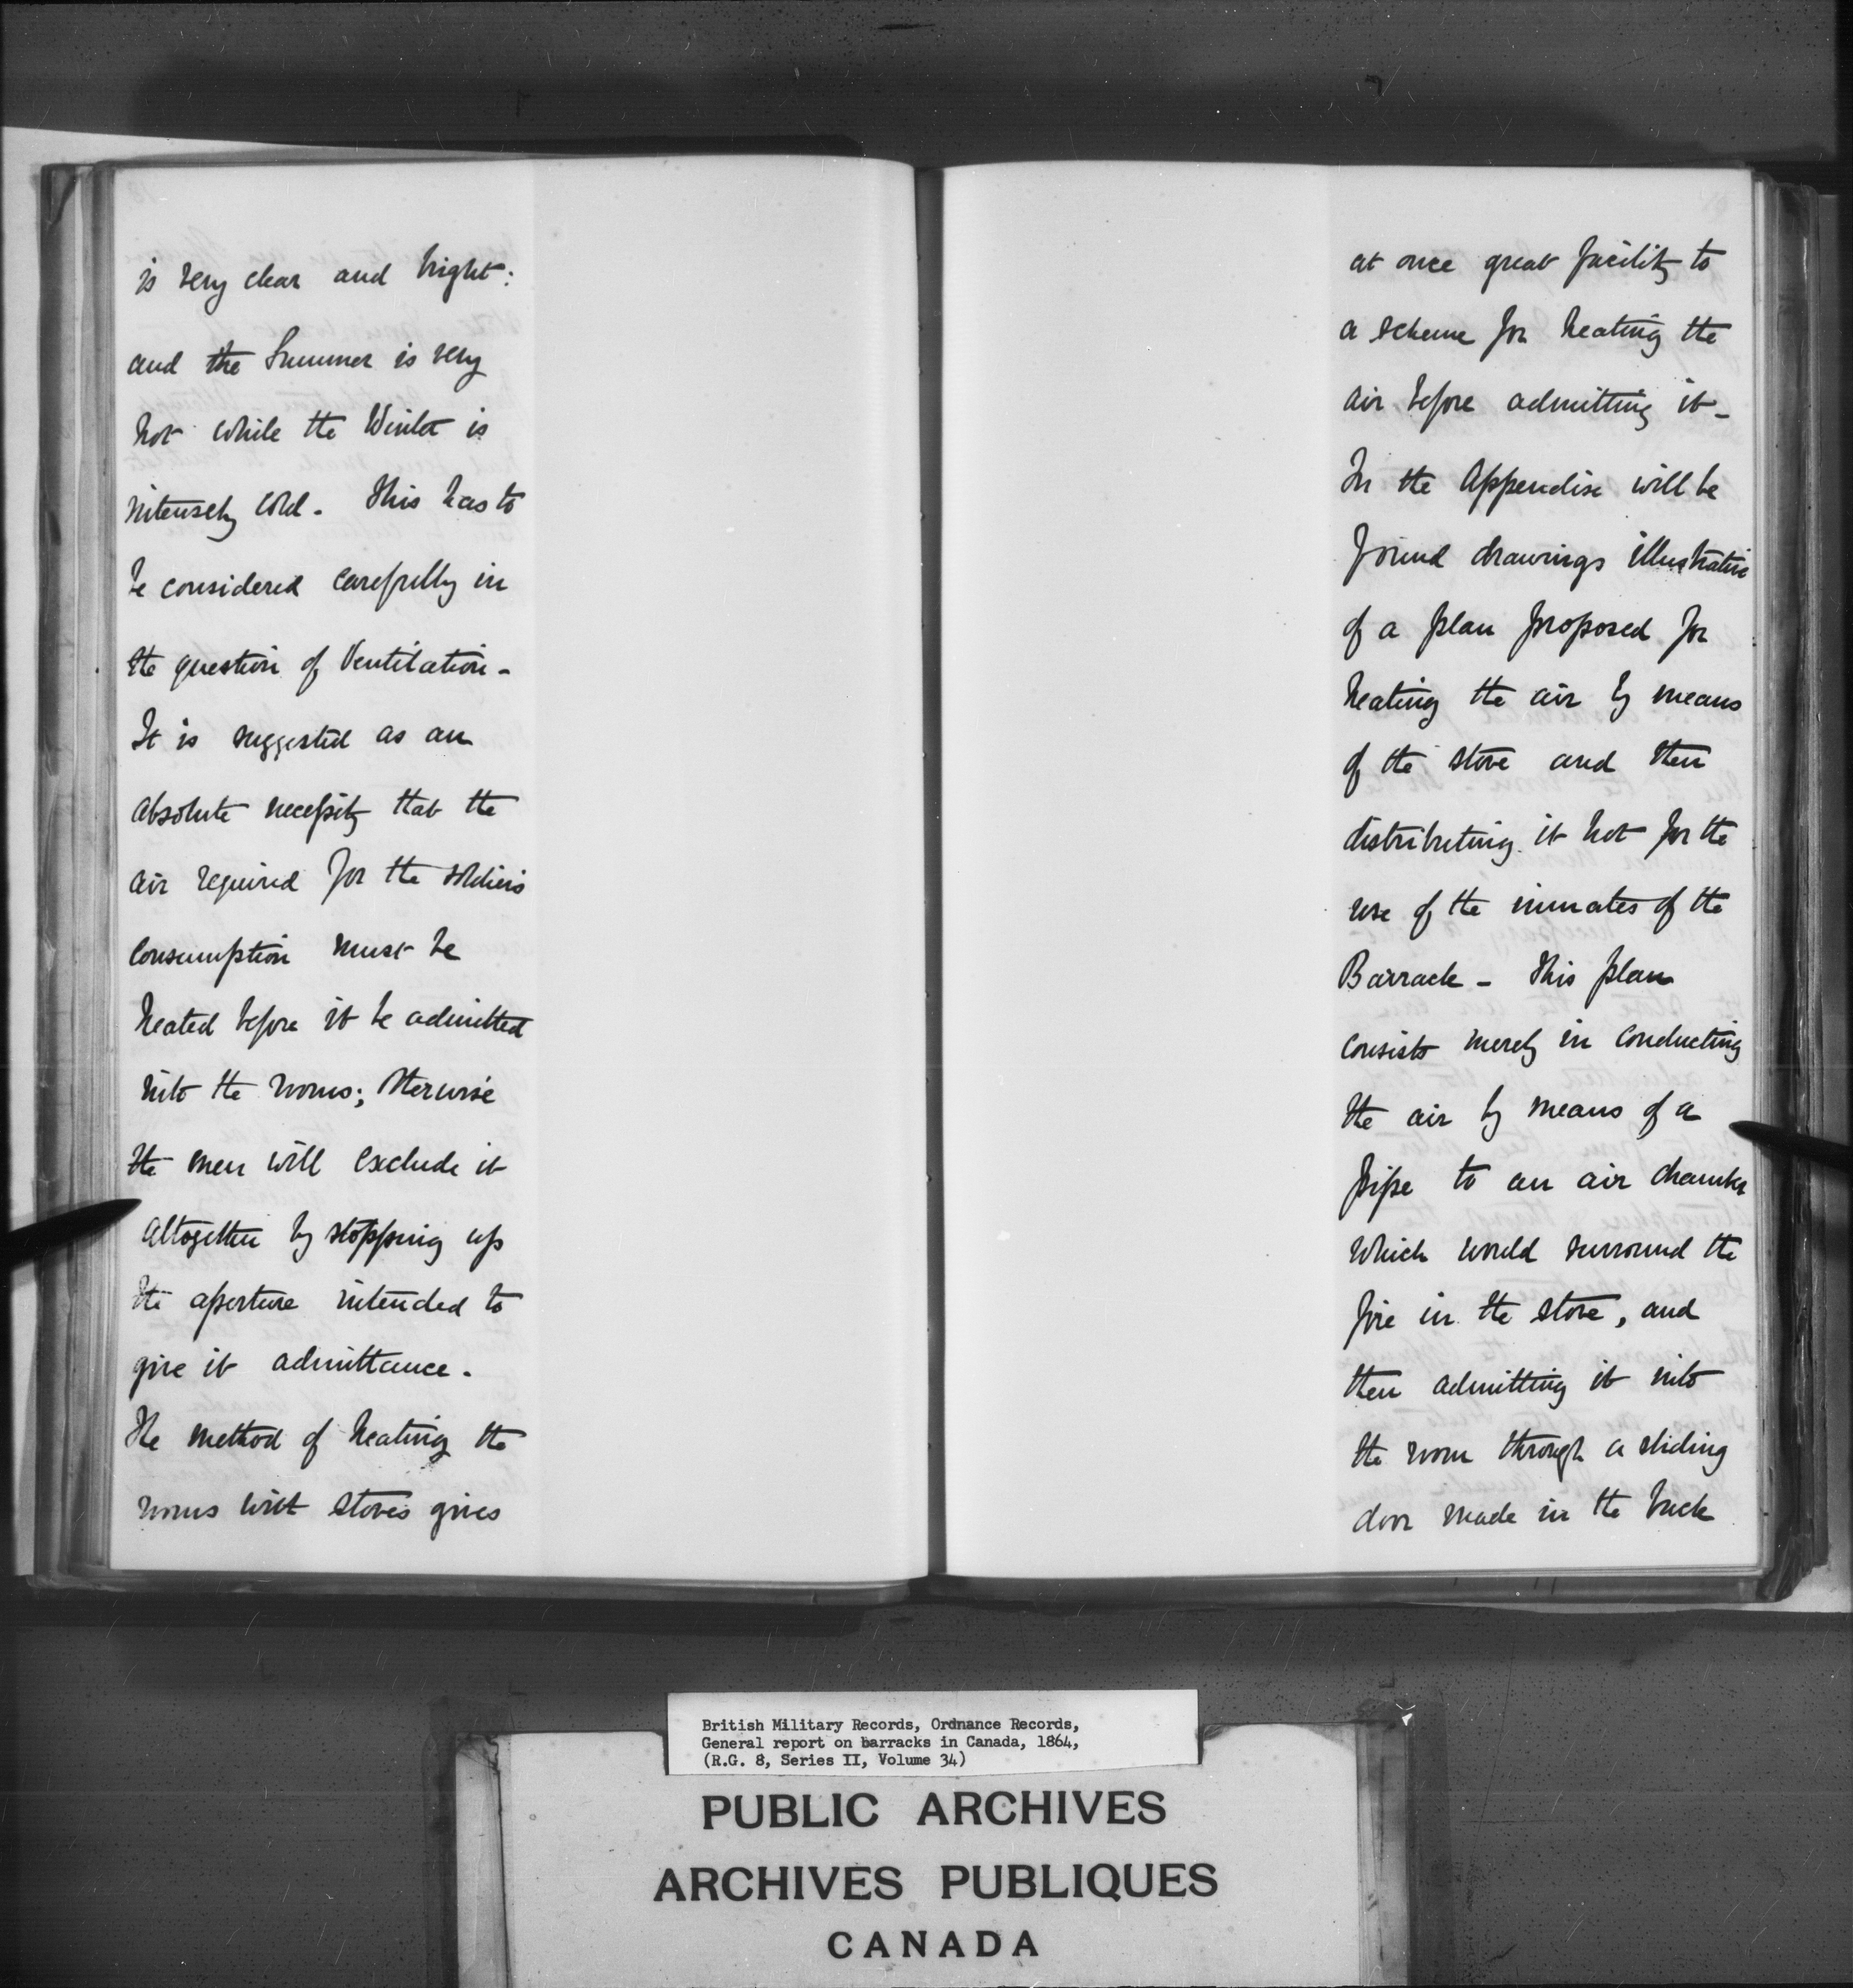 is very clear and bright:
and the Summer is very
hot while the Winter is
intensely cold. This has to
be considered carefully in
the question of Ventilation -
It is suggested as an
absolute necessity that the
air required for the soldiers
consumption must be
heated before it be admitted
into the rooms; otherwise
the men will exclude it
altogether by stopping up
the aperture intended to
give it admittance.
The method of heating the
rooms with stoves gives
at once great facility to
a scheme for heating the
air before admitting it -
In the Appendix will be
found drawings illustrative
of a plan proposed for
heating the air by means
of the stove and then
distributing it hot for the
use of the inmates of the
Barrack - This plan
consists merely in conducting
the air by means of a
pipe to an air chamber
which would surround the
fire in the stove, and
then admitting it into
the room through a sliding
door made in the back
British Military Records, Ordnance Records,
General report on barracks in Canada, 1864,
(R.G. 8, Series II, Volume 34)
PUBLIC ARCHIVES
ARCHIVES PUBLIQUES
CANADA